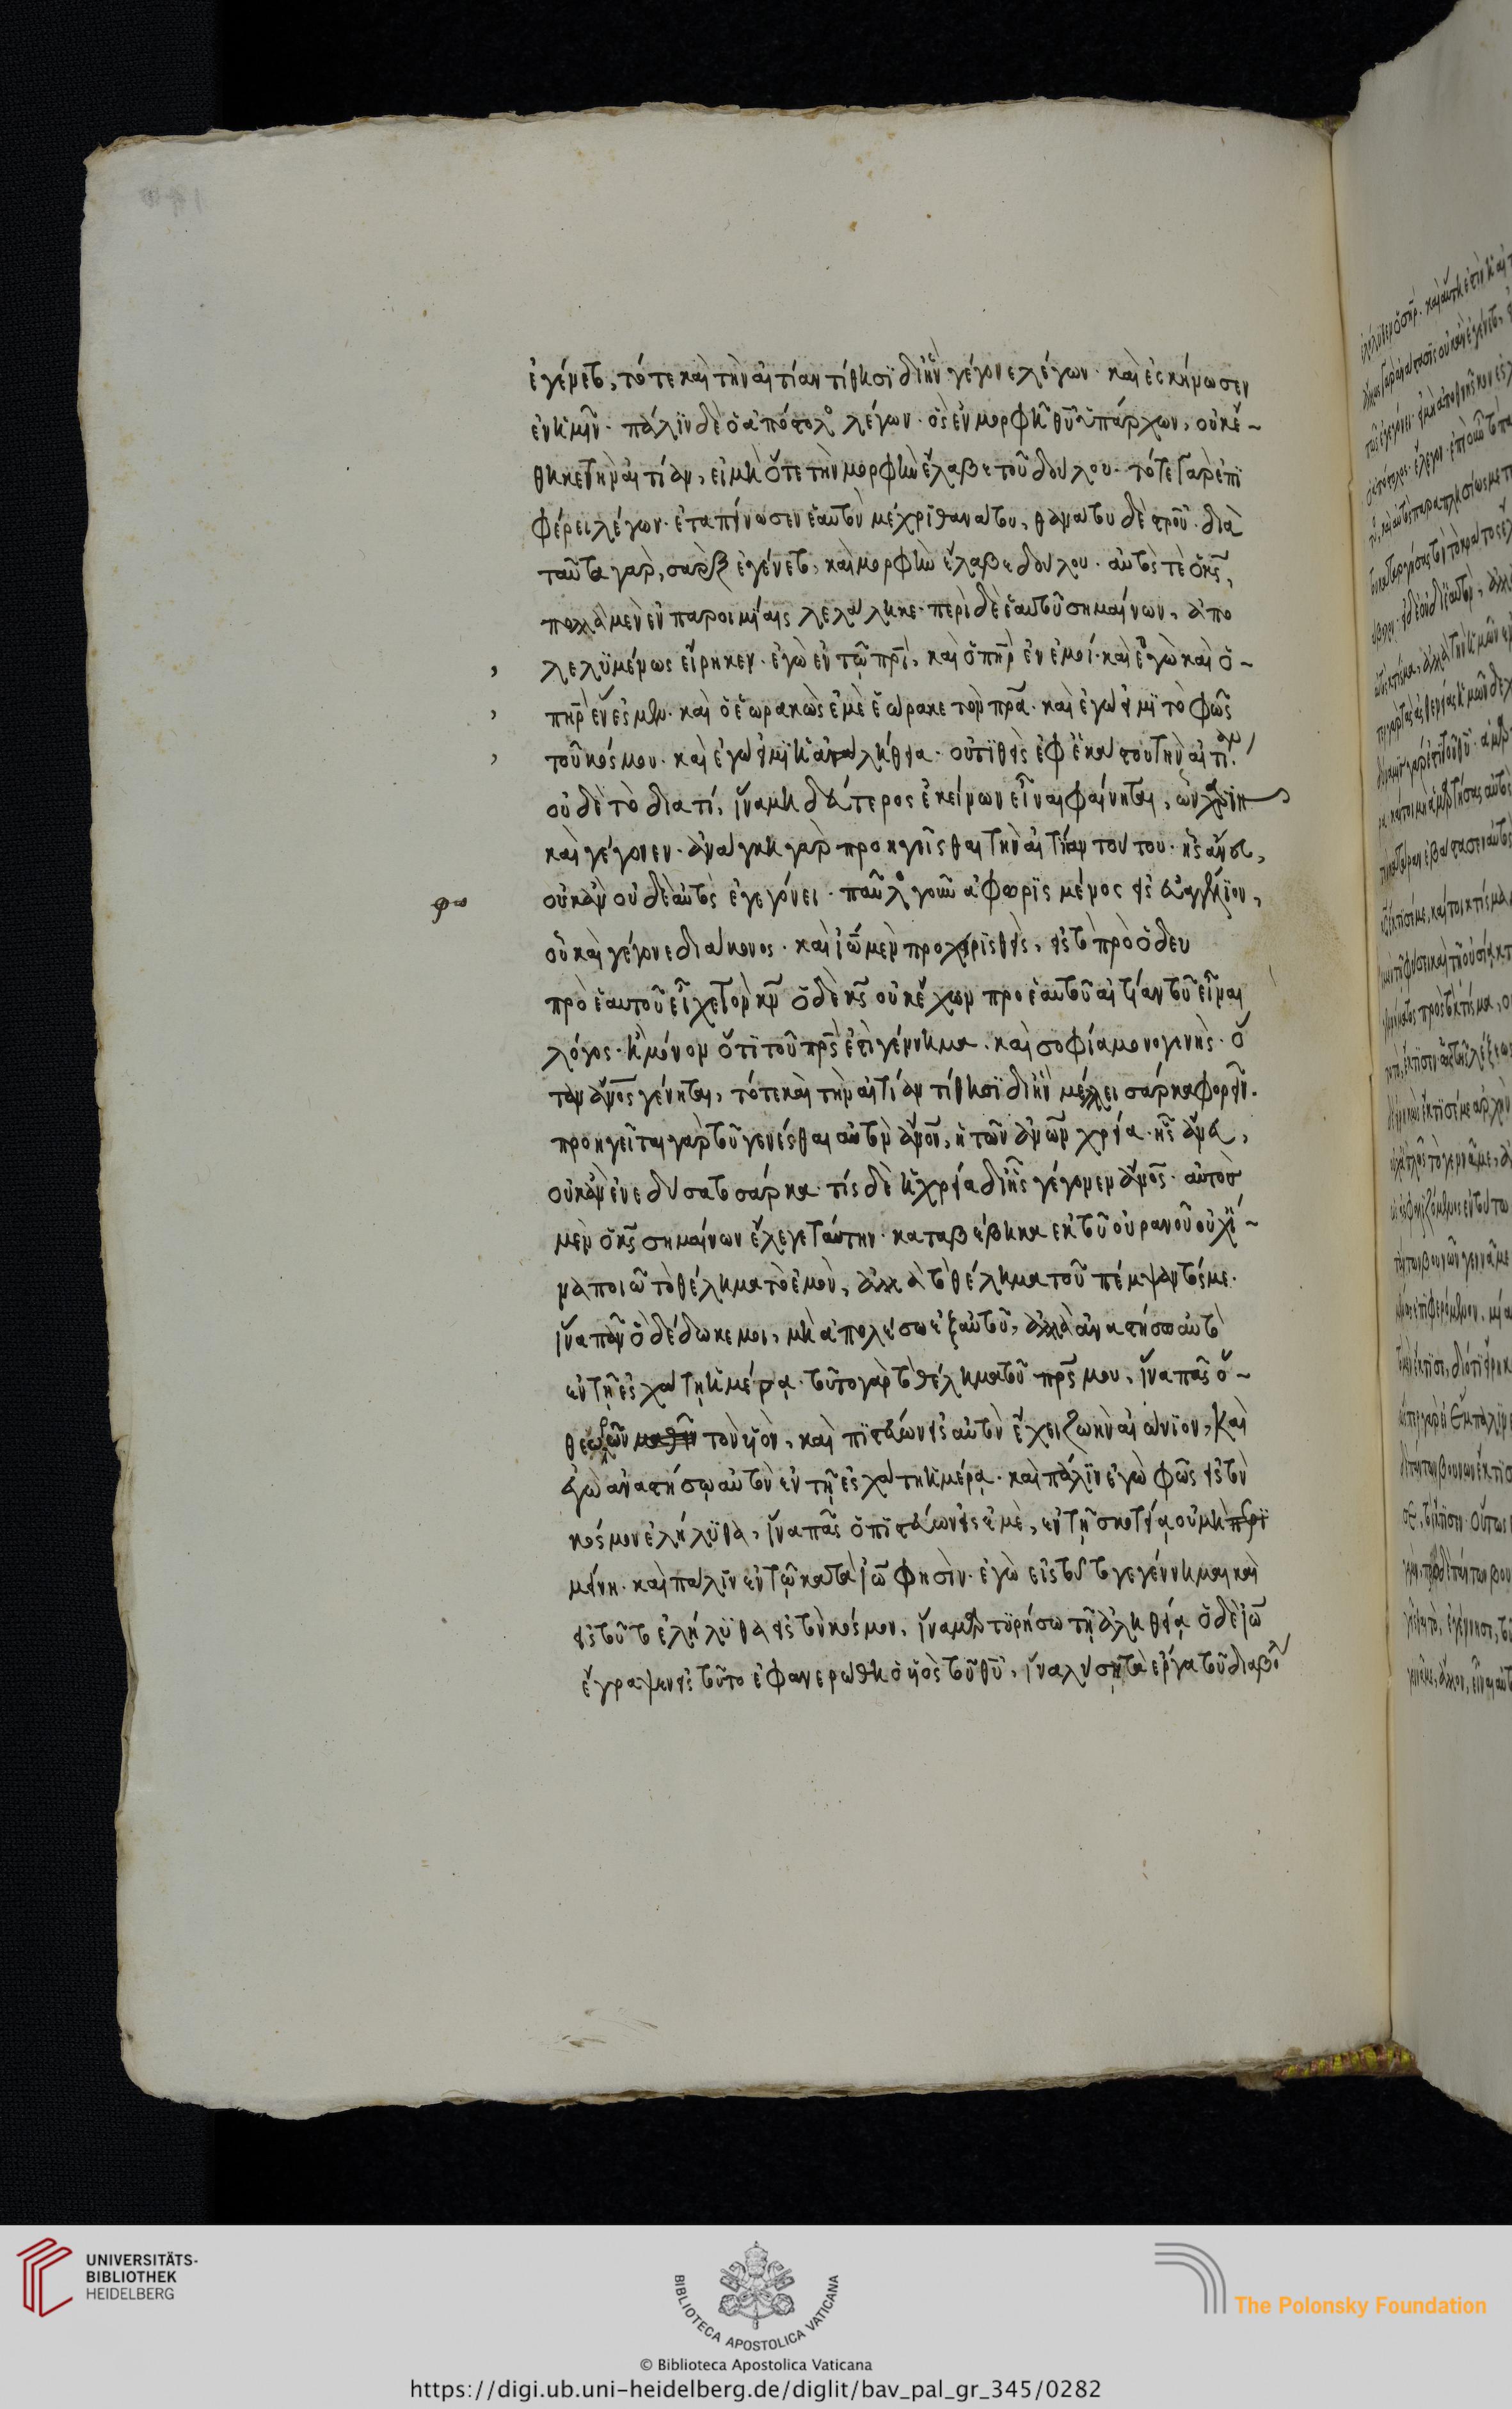 ἐγένετο, τότε καὶ τὴν αἰτίαν τίθησϊ δϊἣν γέγονε λέγων· καὶ ἐσκήνωσεν
ἐν ἡμῖν· πάλϊν δὲ ὁ ἀπόστολος λέγων· ὃς ἐν μορφῆ θῦ ὑπάρχων, οὐκ ἔ-
θηκε τὴν αἰτίαν, εἰ μὴ ὅτε τὴν μορφὴν ἔλαβε τοῦ δούλου· τότε γὰρ ἐπϊ
φέρει λέγων· ἐταπείνωσεν ἑαυτὸν μέχρϊ θανάτου, θανάτου δὲ στροῦ· διὰ
ταῦτα γὰρ, σὰρξ ἐγένετο, καὶ μορφὴν ἔλαβε δούλου· αὐτός τε ὁ κς,
πολλὰ μὲν ἐν παροιμίαις λελάληκε· περὶ δὲ ἑαυτοῦ σημαίνων, ἀπο
λελϋμένως εἴρηκεν· ἐγὼ ἐν τῷ πρϊ, καὶ ὁ πηρ ἐν ἐμοί· καὶ ἐγὼ καὶ ὁ-
πηρ ἕν ἐσμεν· καὶ ὁ ἑωρακὼς ἐμὲ ἑώρακε τὸν πρα· καὶ ἐγώ εἰμϊ τὸ φῶς
τοῦ κόσμου· καὶ ἐγώ εἰμϊ ἡ ἀλήθεια· οὐ τϊθεὶς ἐφ ἑκάστου τὴν αἰτίαν
οὐδὲ τὸ διατί, ἵνα μὴ δεύτερος ἐκείνων εἶναι φαίνηται, ὧν χάριν
καὶ γέγονεν· ἀνάγκη γὰρ προηγεῖσθαι τὴν αἰτίαν τούτου· ἧς ἄνευ,
οὐκ ἂν οὐδὲ αὐτὸς ἐγεγόνει· παῦλος γοῦν ἀφωρϊσμένος εἰς εὐαγγέλϊον,
οὗ καὶ γέγονε διάκονος· καὶ ἰῶ μὲν προχειρϊσθεὶς, εἰς τὸ προοδευ
πρὸ ἑαυτοῦ εἶχε τὸν κν ὁ δὲ κς οὐκ ἔχων πρὸ ἑαυτοῦ αἰτίαν τοῦ εἶναι
λόγος· ἢ μόνον ὅτϊ τοῦ πρς ἐστὶ γέννημα· καὶ σοφία μονογενὴς· ὅ
ταν ἄνος γένηται, τότε καὶ τὴν αἰτίαν τίθησϊ δϊἣν μέλλει σάρκα φορεῖν·
προηγεῖται γὰρ τοῦ γενέσθαι αὐτὸν ἄνον, ἡ τῶν ἀνων χρεία· ἧς ἄνευ,
οὐκ ἂν ἐνεδύσατο σάρκα· τίς δὲ ἡ χρεία δϊἣς γέγονεν ἄνος· αὐτὸς
μὲν ὁ κς σημαίνων ἔλεγε ταύτην· καταβέβηκα ἐκ τοῦ οὐρανοῦ οὐχ ἵ-
να ποιῶ τὸ θέλημα τὸ ἐμὸν, ἀλλὰ τὸ θέλημα τοῦ πέμψαντός με·
ἵνα πᾶν ὃ δέδωκε μοι, μὴ ἀπολέσω ἐξ αὐτοῦ, ἀλλὰ ἀναστήσω αὐτὸ
ἐν τῇ ἐσχάτῃ ἡμέρᾳ· τοῦτο γὰρ τὸ θέλημα τοῦ πρς μου, ἵνα πᾶς ὁ-
θεωρῶν τὸν υἱὸν, καὶ πϊστεύων εἰς αὐτὸν ἔχει ζωὴν αἰώνϊον, καὶ
ἐγὼ ἀναστήσω αὐτὸν ἐν τῇ ἐσχάτη ἡμέρᾳ· καὶ πάλϊν ἐγὼ φῶς εἰς τὸν
κόσμον ἐλήλϋθα, ἵνα πᾶς ὁ πϊστεύων εἰς ἐμὲ, ἐν τῇ σκοτείᾳ οὐ μὴ
μείνη· καὶ πάλϊν ἐν τῷ κατὰ ἰῶ φησὶν· ἐγὼ εἰς τοῦτο γεγέννημαι καὶ
εἰς τοῦτο ἐλήλϋθα εἰς τὸν κόσμον, ἵνα μαρτϋρήσω τῇ ἀληθείᾳ ὁ δὲ ἰῶ
ἔγραψεν εἰς τοῦτο ἐφανερώθη ὁ υἱὸς τοῦ θῦ, ἵνα λύσῃ τὰ ἔργα τοῦ διαβόλου
UNIVERSITÄTS-
BIBLIOTHEK
HEIDELBERG
BIBLIOTECA APOSTOLICA VATICANA
The Polonsky Foundation
© Biblioteca Apostolica Vaticana
https://digi.ub.uni-heidelberg.de/diglit/bav_pal_gr_345/0282